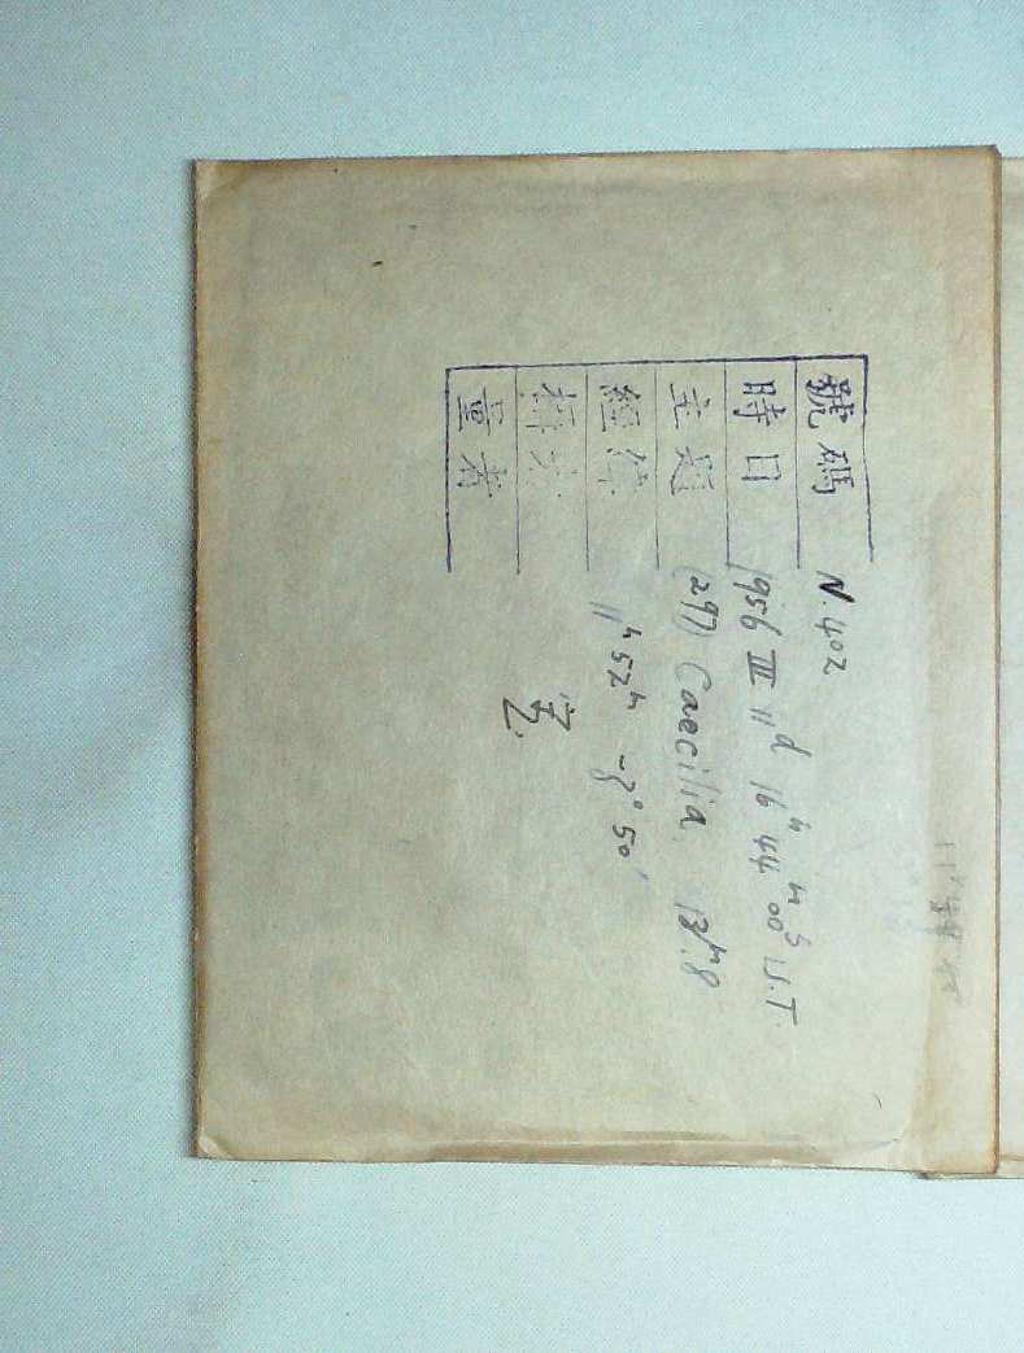 號碼 N.402
時日 1956 III 11ᵈ 16ʰ 44ᵐ 00ˢ U.T.
主題 (297) Caecilia 13ᵐ.8
經緯 11ʰ 52ᵐ -3° 50′
量者